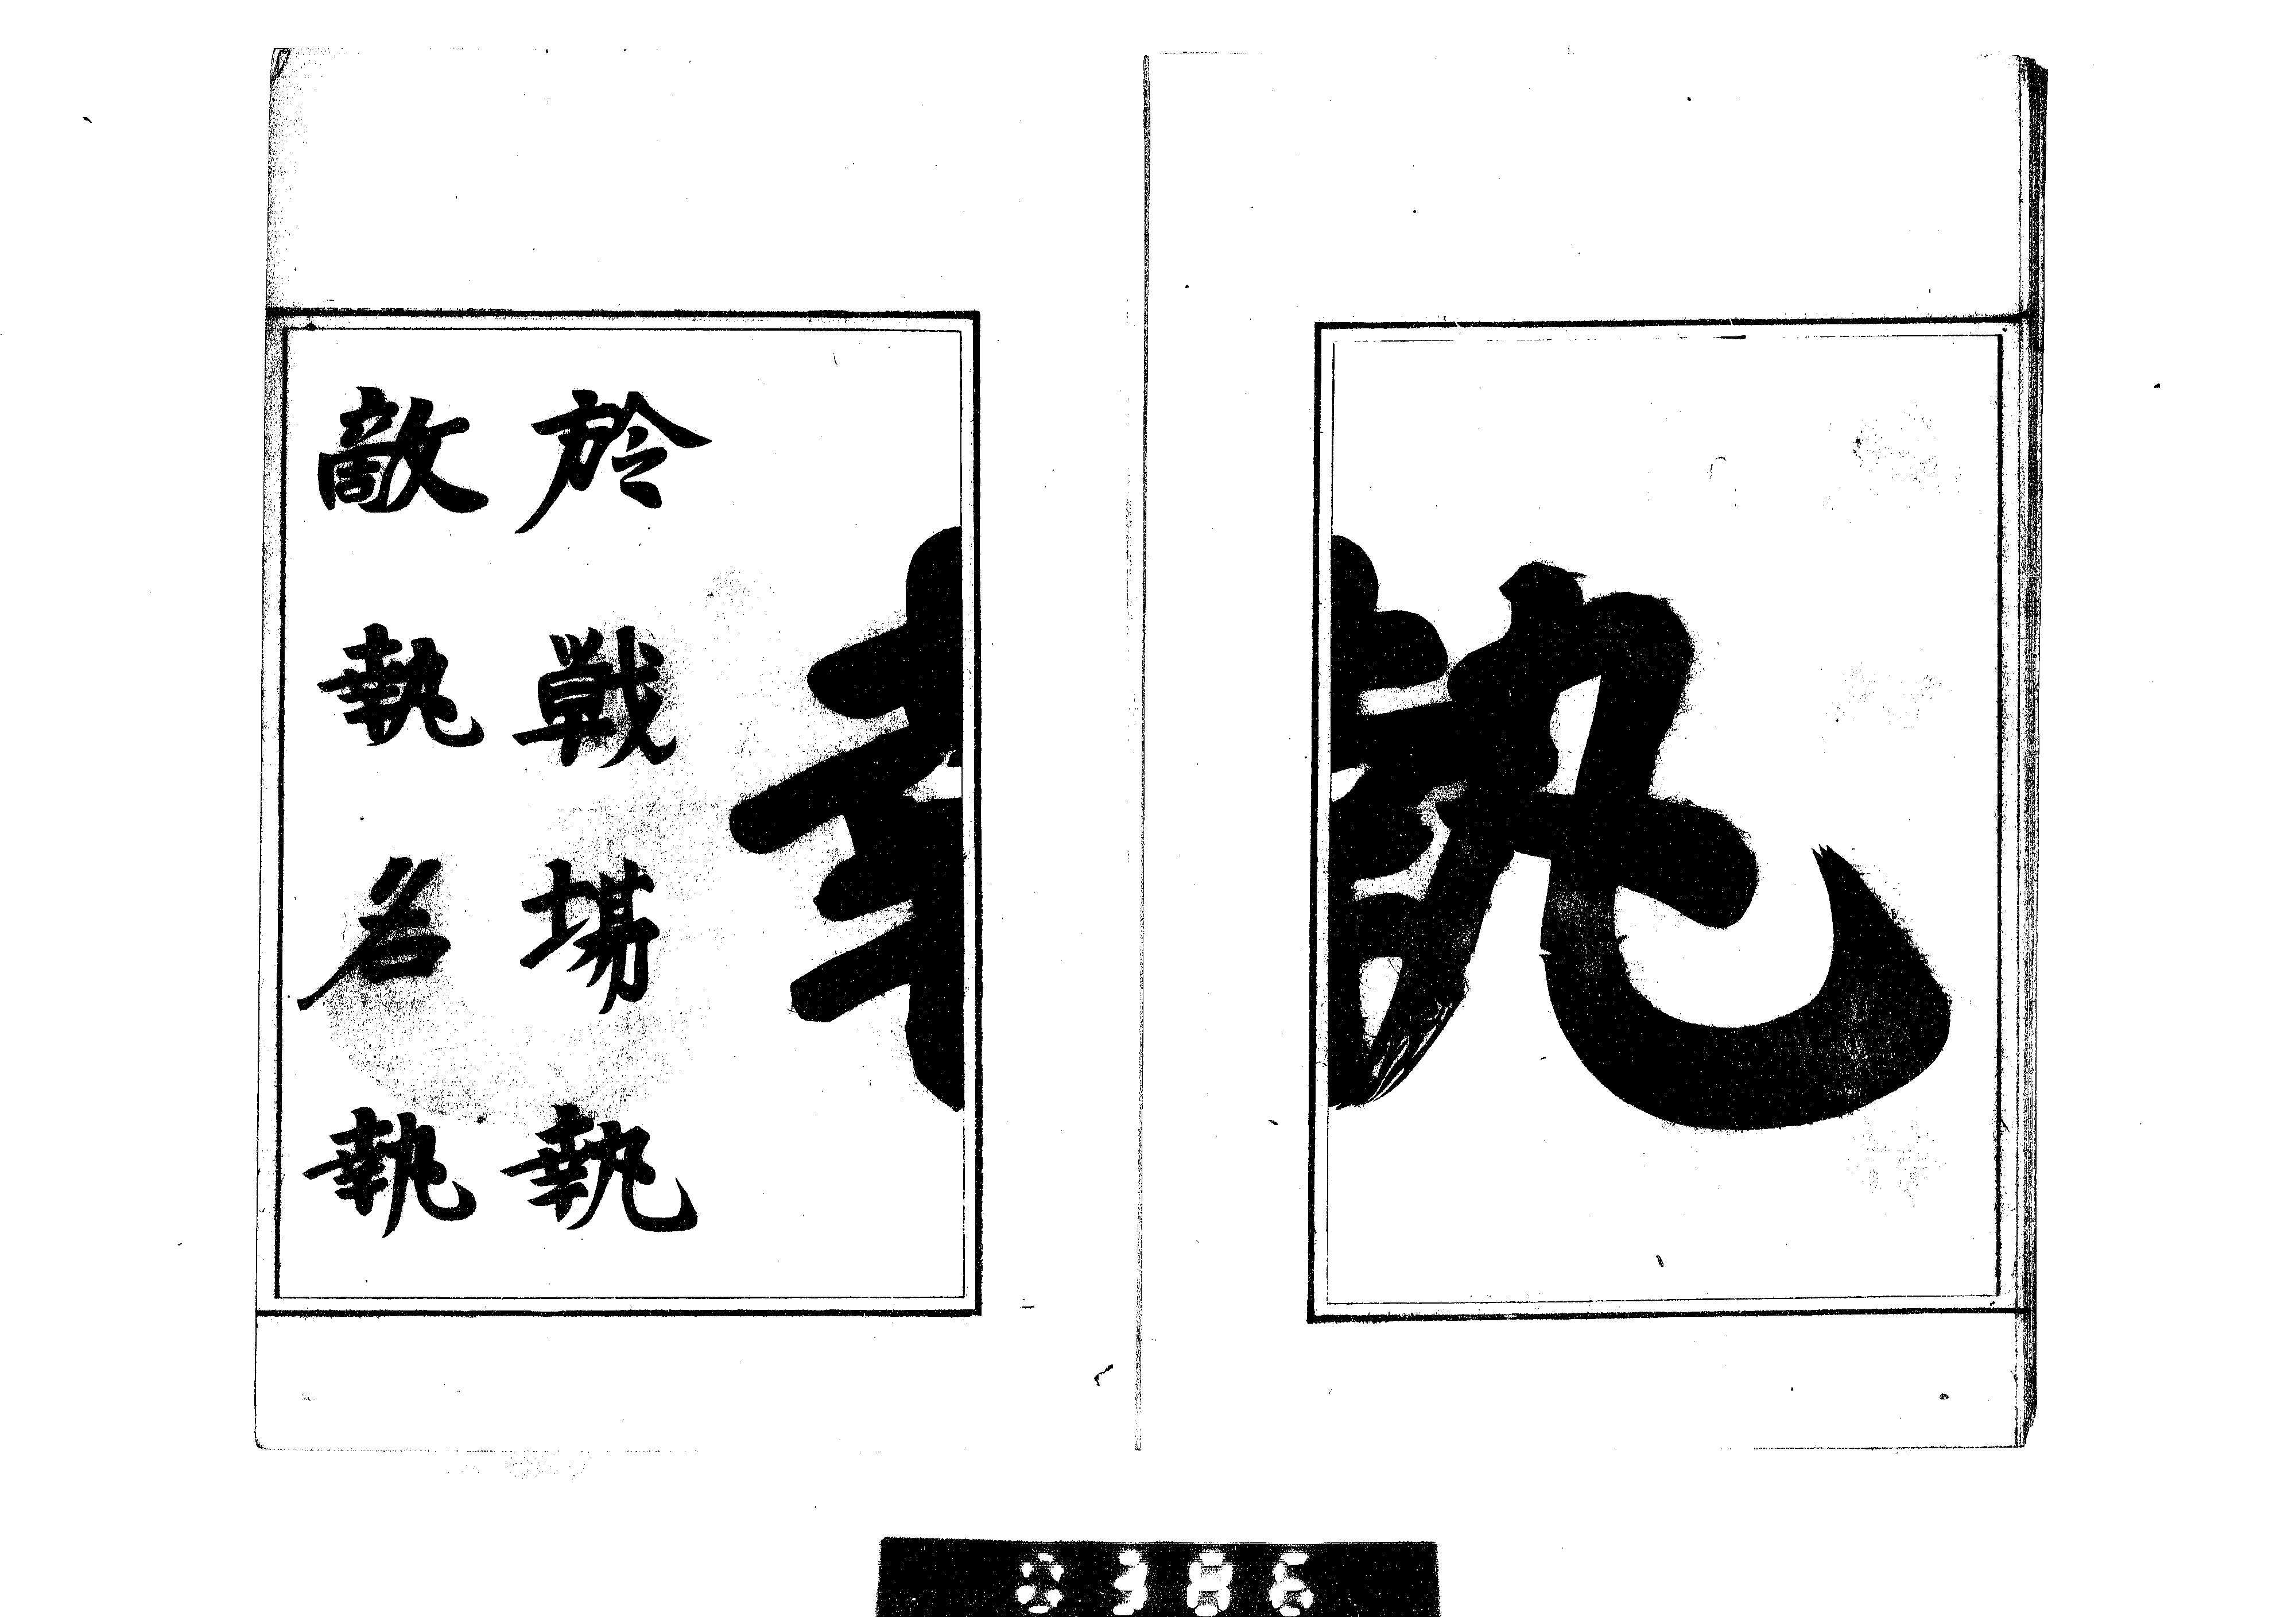 執
於戰場執
敵執名執